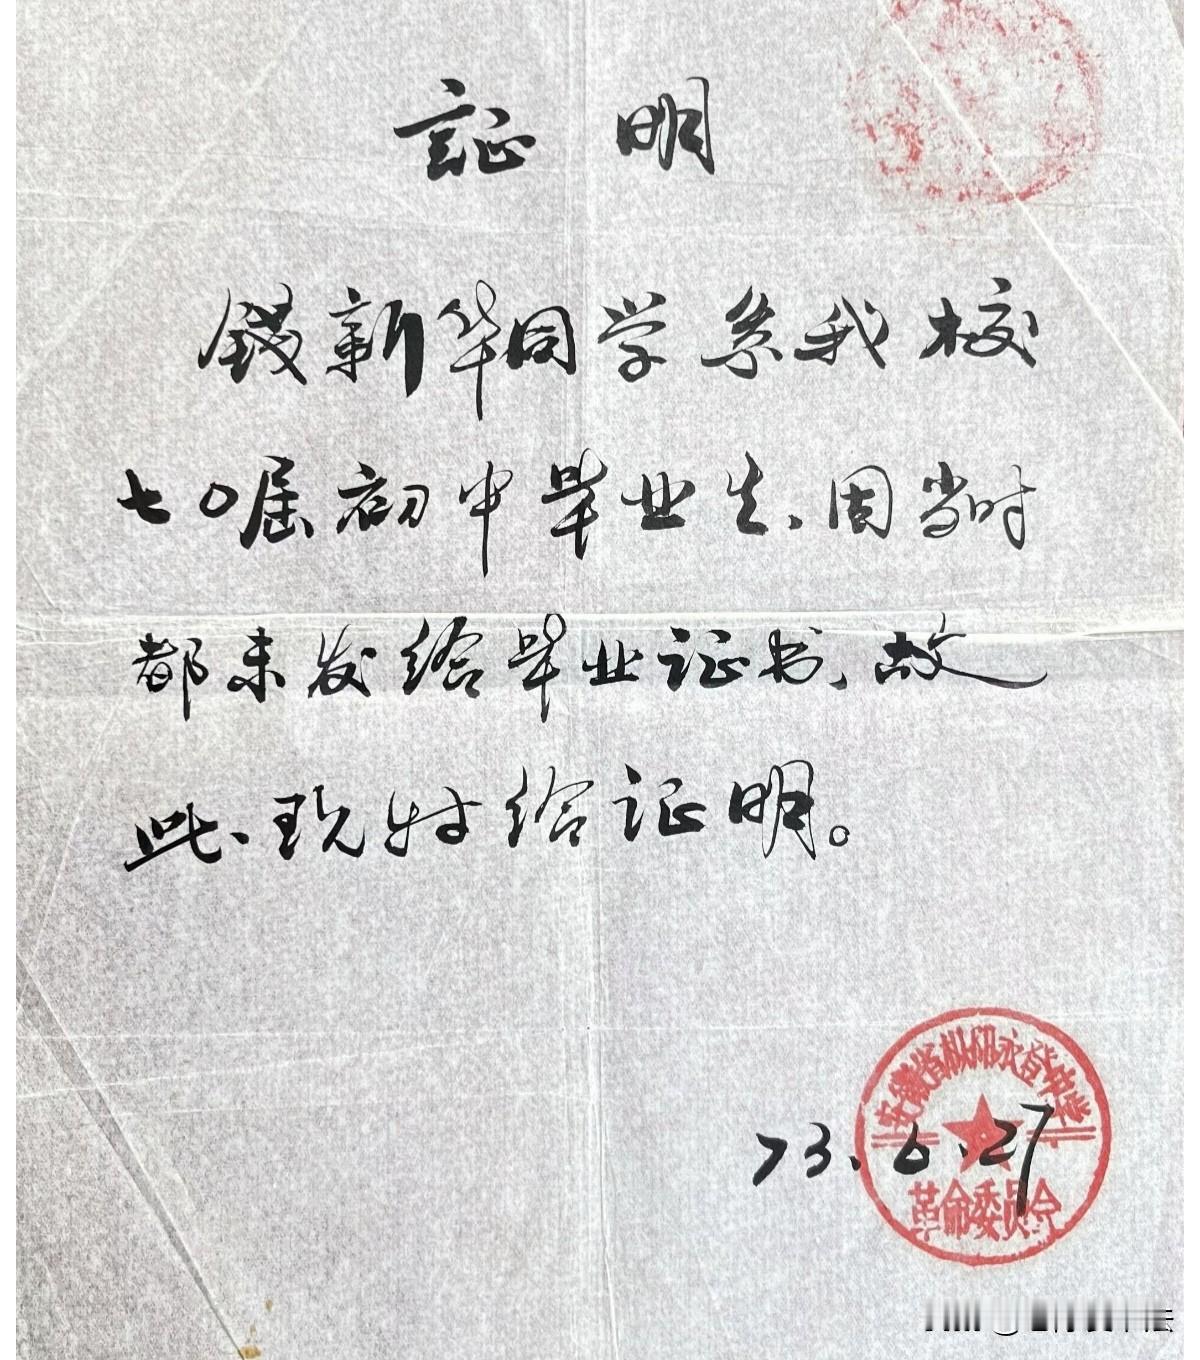 证明
钱新华同学系我校
七〇届初中毕业生、因当时
都未发给毕业证书、故
此、现特给证明。
73.6.27
安徽省枞阳永登中学
革命委员会